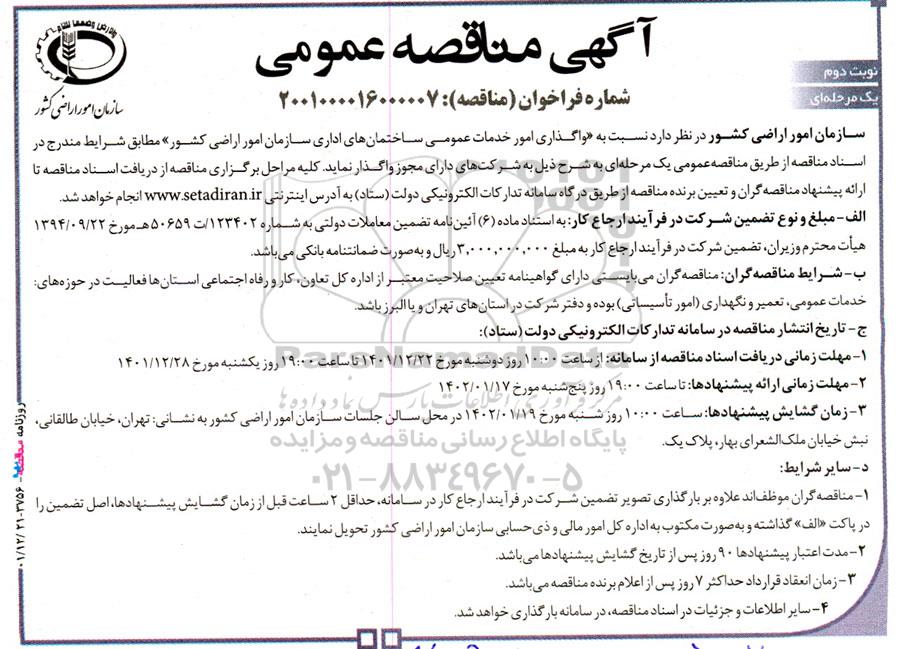 آگهی مناقصه عمومی
نوبت دوم
یک مرحله‌ای
سازمان امور اراضی کشور
شماره فراخوان (مناقصه): ۲۰۰۱۰۰۰۰۱۶۰۰۰۰۰۷
سازمان امور اراضی کشور در نظر دارد نسبت به «واگذاری امور خدمات عمومی ساختمان‌های اداری سازمان امور اراضی کشور» مطابق شرایط مندرج در
اسناد مناقصه از طریق مناقصه‌عمومی یک مرحله‌ای به شرح ذیل به شرکت‌های دارای مجوز واگذار نماید. کلیه مراحل برگزاری مناقصه از دریافت اسناد مناقصه تا
ارائه پیشنهاد مناقصه‌گران و تعیین برنده مناقصه از طریق درگاه سامانه تدارکات الکترونیکی دولت (ستاد) به آدرس اینترنتی www.setadiran.ir انجام خواهد شد.
الف- مبلغ و نوع تضمین شرکت در فرآیند ارجاع کار: به استناد ماده (۶) آئین‌نامه تضمین معاملات دولتی به شماره ۱۲۳۴۰۲/ت ۵۰۶۵۹ هـ مورخ ۱۳۹۴/۰۹/۲۲
هیأت محترم وزیران، تضمین شرکت در فرآیند ارجاع کار به مبلغ ۳,۰۰۰,۰۰۰,۰۰۰ ریال و به‌صورت ضمانتنامه بانکی می‌باشد.
ب- شرایط مناقصه‌گران: مناقصه‌گران می‌بایستی دارای گواهینامه تعیین صلاحیت معتبر از اداره کل تعاون، کار و رفاه اجتماعی استان‌ها فعالیت در حوزه‌های:
خدمات عمومی، تعمیر و نگهداری (امور تأسیساتی) بوده و دفتر شرکت در استان‌های تهران و یا البرز باشد.
ج- تاریخ انتشار مناقصه در سامانه تدارکات الکترونیکی دولت (ستاد):
۱- مهلت زمانی دریافت اسناد مناقصه از سامانه: از ساعت ۱۰:۰۰ روز دوشنبه مورخ ۱۴۰۱/۱۲/۲۲ تا ساعت ۱۹:۰۰ روز یکشنبه مورخ ۱۴۰۱/۱۲/۲۸
۲- مهلت زمانی ارائه پیشنهادها: تا ساعت ۱۹:۰۰ روز پنج‌شنبه مورخ ۱۴۰۲/۰۱/۱۷
۳- زمان گشایش پیشنهادها: ساعت ۱۰:۰۰ روز شنبه مورخ ۱۴۰۲/۰۱/۱۹ در محل سالن جلسات سازمان امور اراضی کشور به نشانی: تهران، خیابان طالقانی،
نبش خیابان ملک‌الشعرای بهار، پلاک یک.
د- سایر شرایط:
۱- مناقصه‌گران موظف‌اند علاوه بر بارگذاری تصویر تضمین شرکت در فرآیند ارجاع کار در سامانه، حداقل ۲ ساعت قبل از زمان گشایش پیشنهادها، اصل تضمین را
در پاکت «الف» گذاشته و به‌صورت مکتوب به اداره کل امور مالی و ذی‌حسابی سازمان امور اراضی کشور تحویل نمایند.
۲- مدت اعتبار پیشنهادها ۹۰ روز پس از تاریخ گشایش پیشنهادها می‌باشد.
۳- زمان انعقاد قرارداد حداکثر ۷ روز پس از اعلام برنده مناقصه می‌باشد.
۴- سایر اطلاعات و جزئیات در اسناد مناقصه، در سامانه بارگذاری خواهد شد.
ParsNamadData
پایگاه اطلاع رسانی مناقصه و مزایده
۰۲۱-۸۸۳۴۹۶۷۰-۵